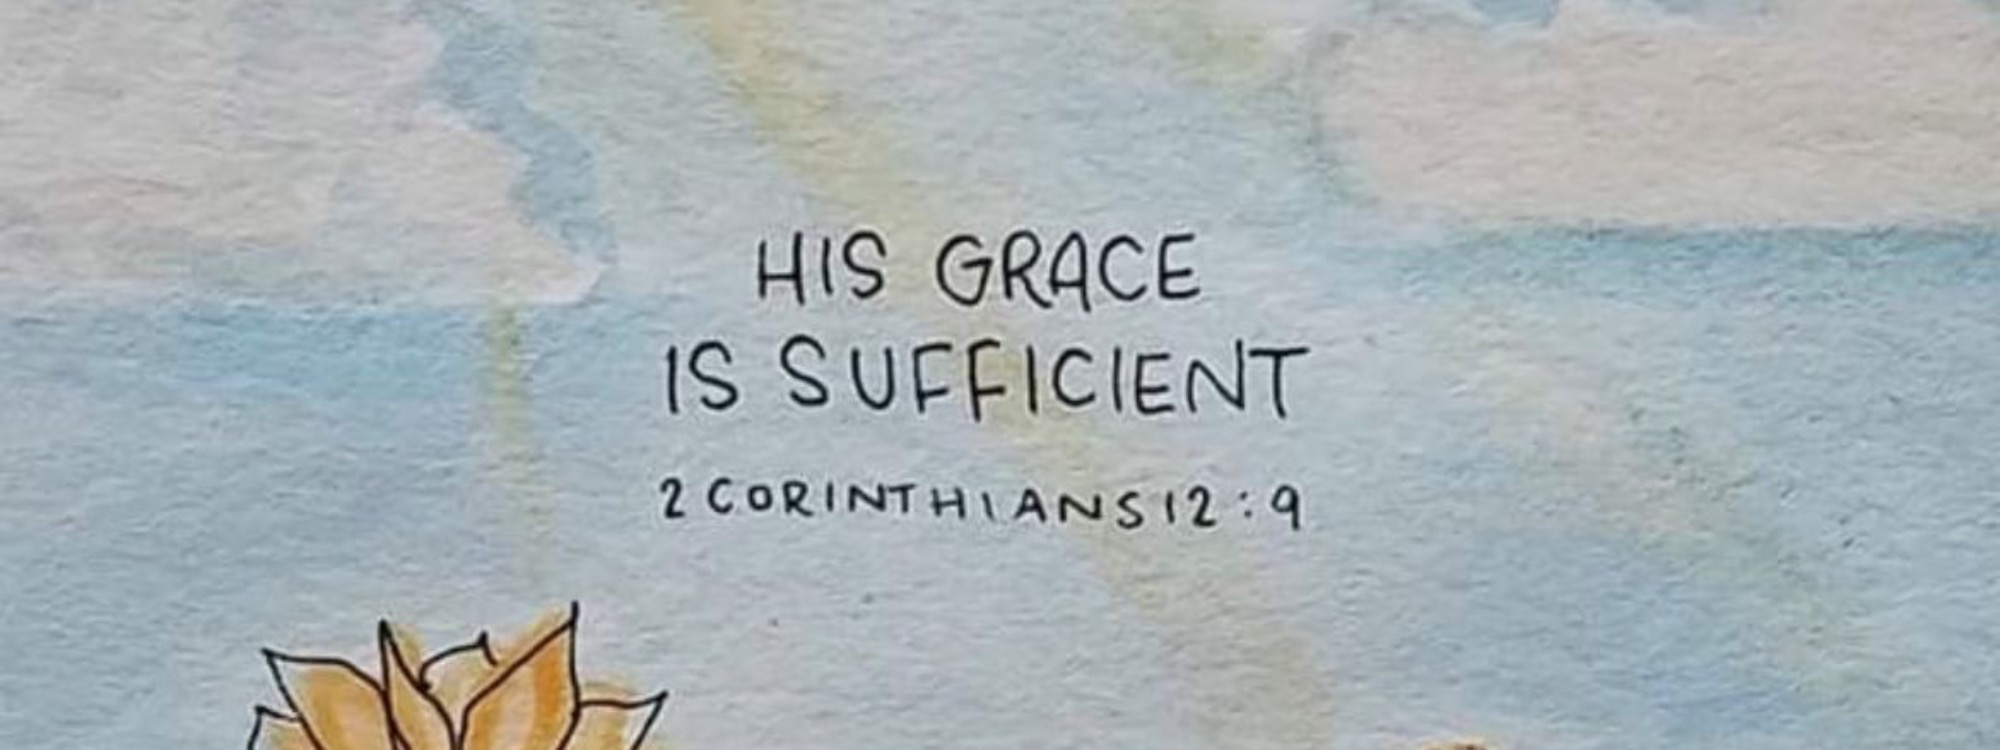 HIS GRACE
IS SUFFICIENT
2 CORINTHIANS 12:9